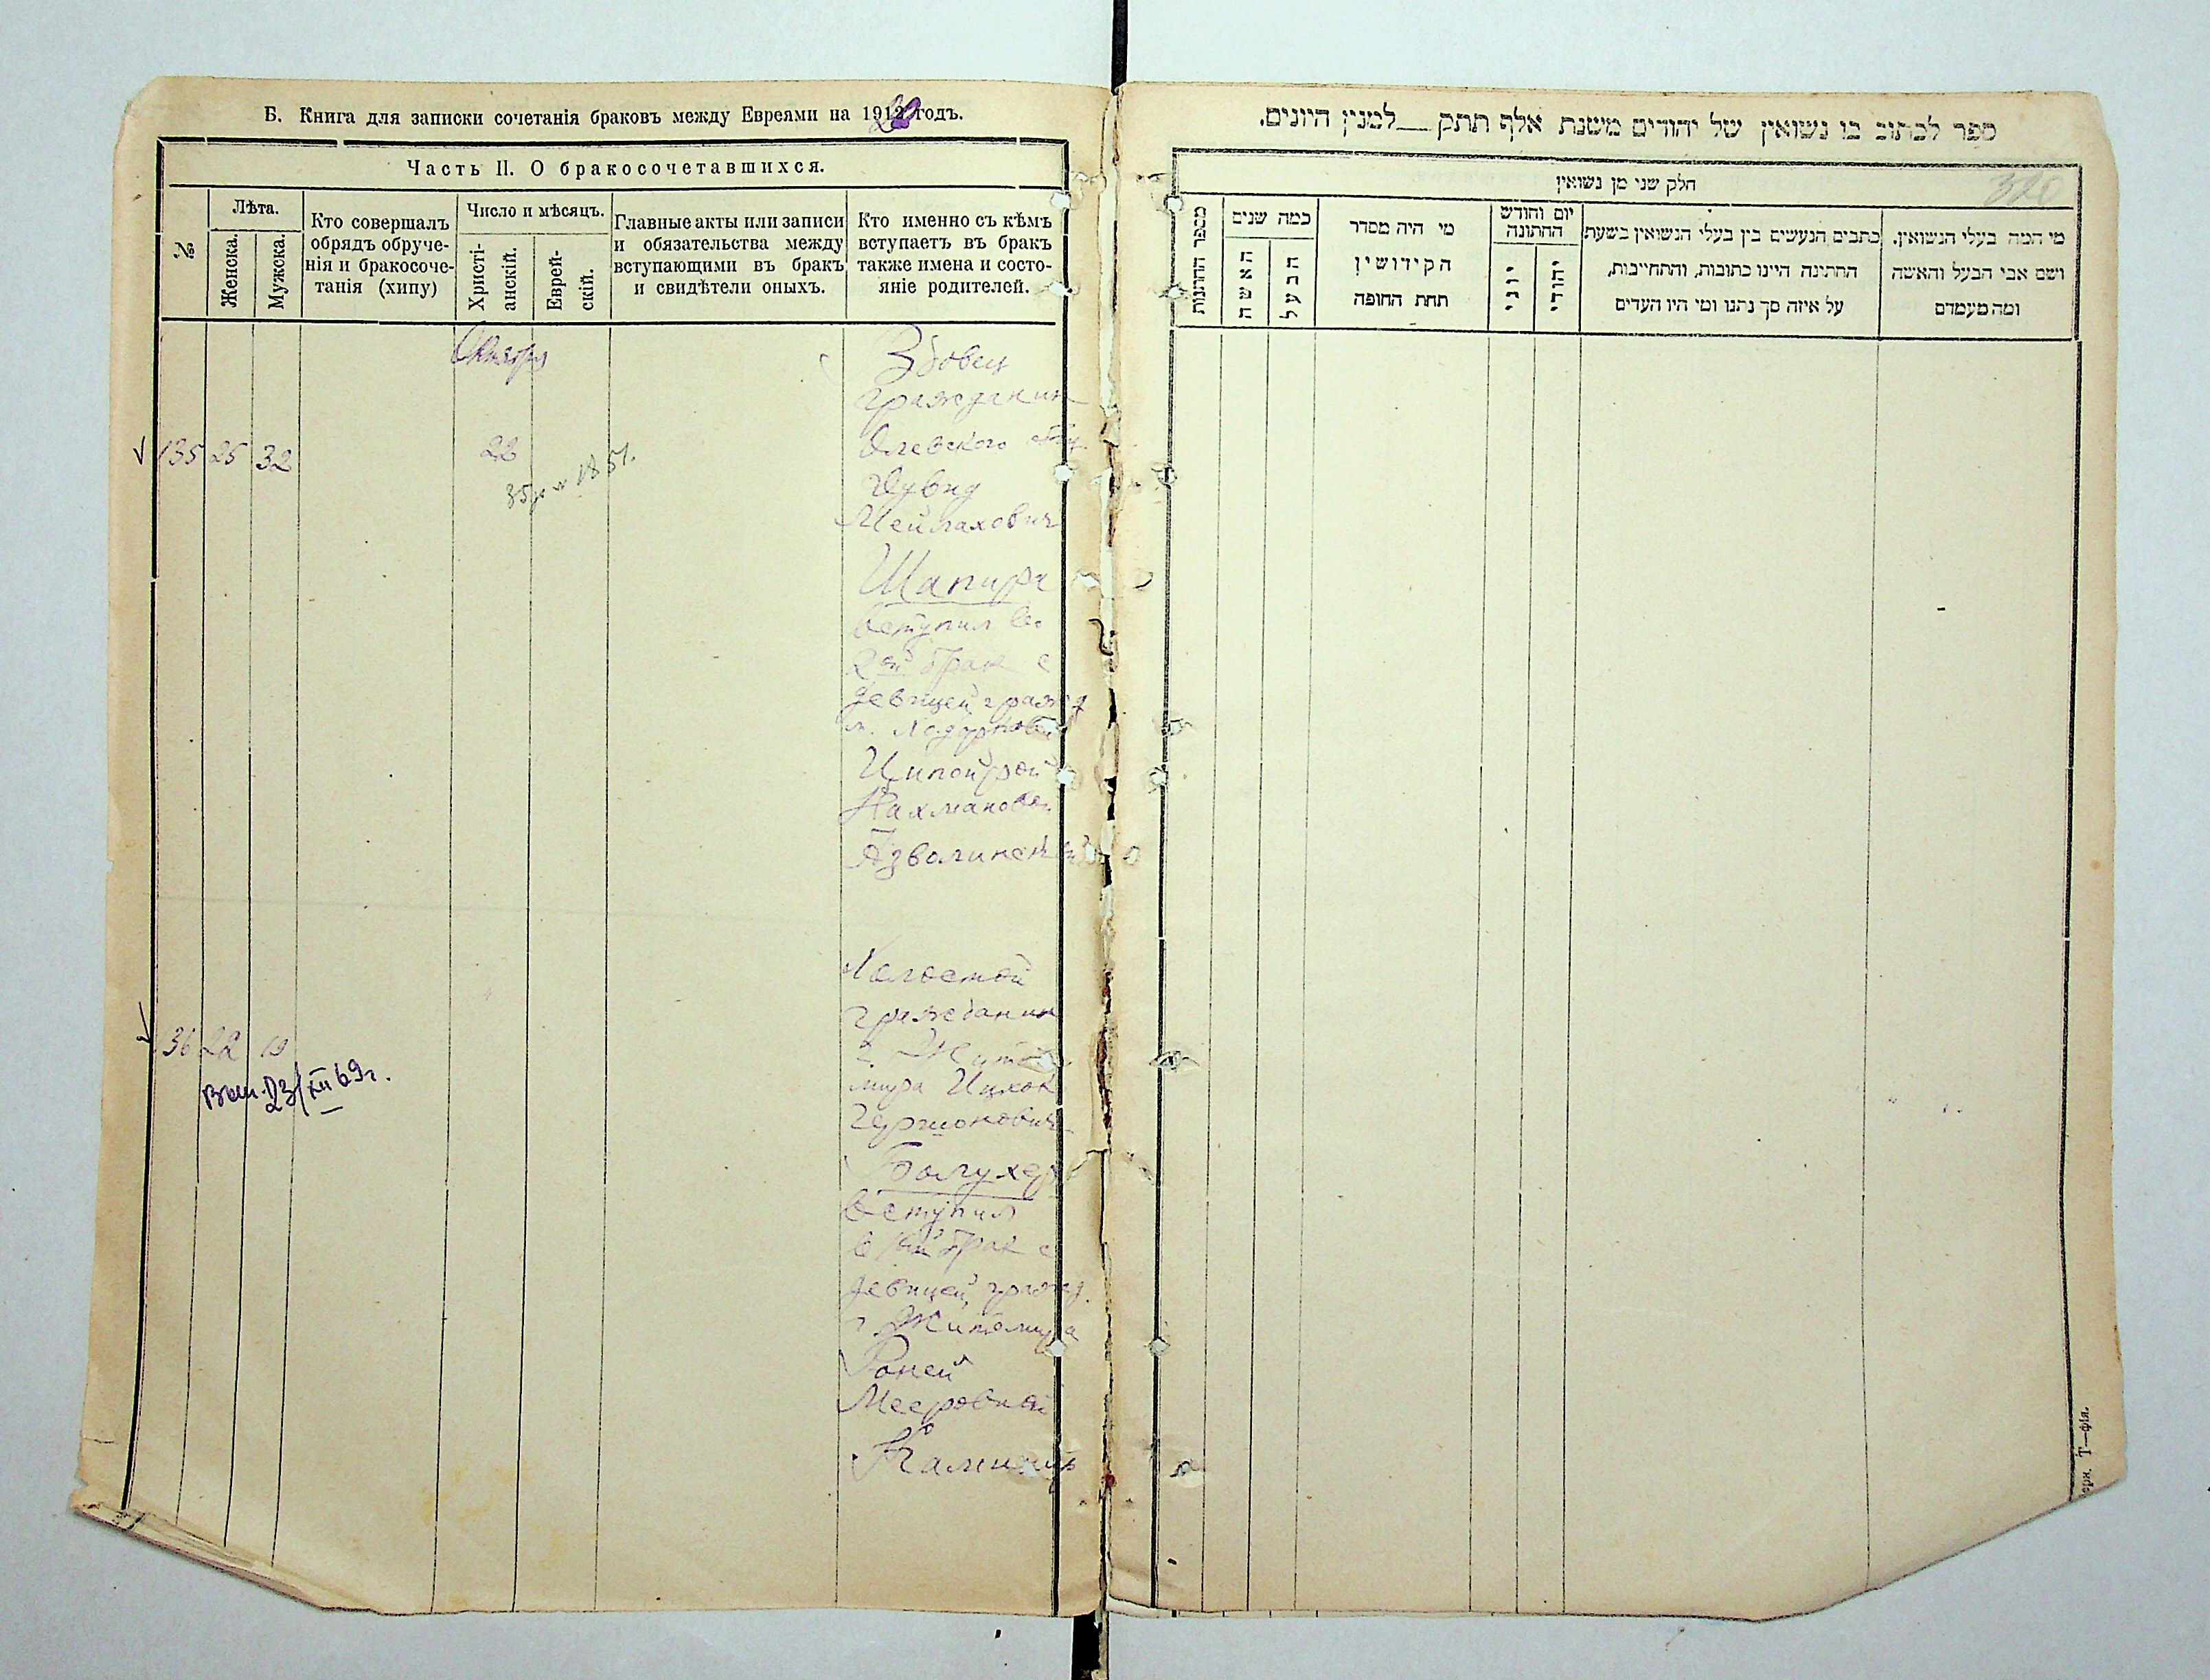 Б. Книга для записки сочетанія браковъ между Евреями на 1920 годъ.
Часть II. О бракосочетавшихся.
№
Лѣта.
Женска.
Мужска.
Кто совершалъ
обрядъ обруче-
нія и бракосоче-
танія (хипу)
Число и мѣсяцъ.
Христі-
анскій.
Еврей-
скій.
Главные акты или записи
и обязательства между
вступающими въ бракъ
и свидѣтели оныхъ.
Кто именно съ кѣмъ
вступаетъ въ бракъ
также имена и состо-
яніе родителей.
Октября
135 25 32 22
Вдовец
гражданин
Олевского
Дувид
Мейлахович
Шапира
вступил во
2ой брак с
девицей гражд
м. Ходорков
Ципойрой
Нахмановой
Азволинской
136 22 19
Выл. 23/XII 69г.
Холостой
гражданин
г. Жито
мира Ицхок
Гершонович
Болухер
вступил
в 1ый брак с
девицей гражд.
г. Житомира
Роней
Мееровной
Камин
ספר לכתוב בו נשואין של יהודים משנת אלף תתק __ למנין היונים.
320
חלק שני מן נשואין
מספר החתונות
כמה שנים
האשה
הבעל
מי היה מסדר
הקידושין
תחת החופה
יום וחודש
החתונה
יוני
יהודי
כתבים הנעשים בין בעלי הנשואין בשעת
החתינה היינו כתובות, והתחייבות,
על איזה סך נתנו ומי היו העדים
מי המה בעלי הנשואין.
ושם אבי הבעל והאשה
ומה מעמדם
Т—фія.